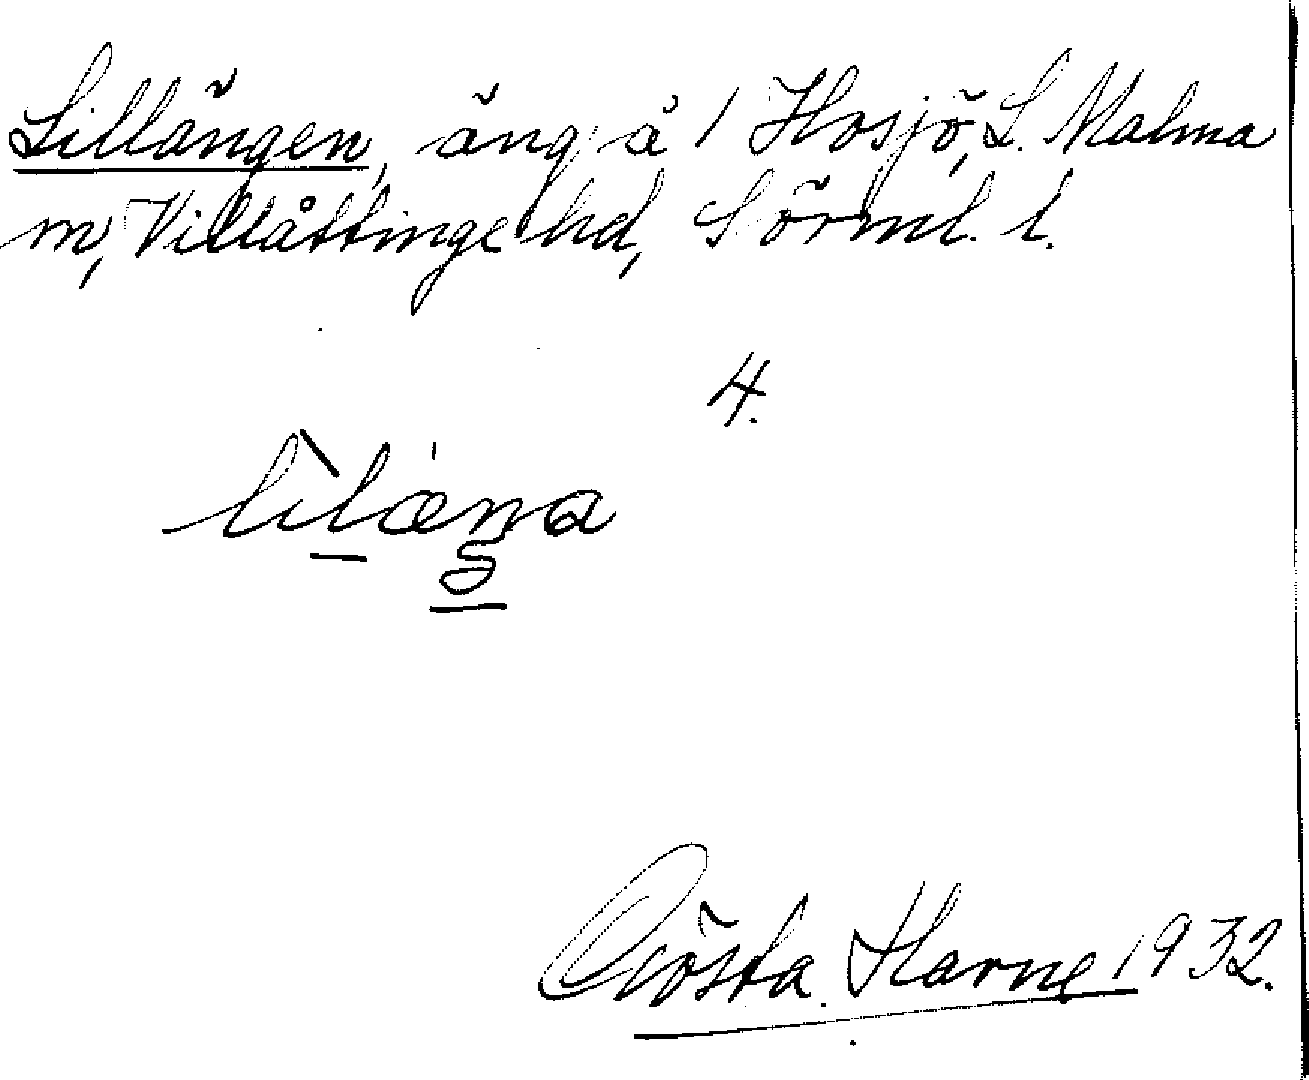 Lillängen, äng å 1 Hosjö, L. Malma
m, Villåttinge hd, Sörml. l.
4.
lìlæŋa
Gösta Harne 1932.